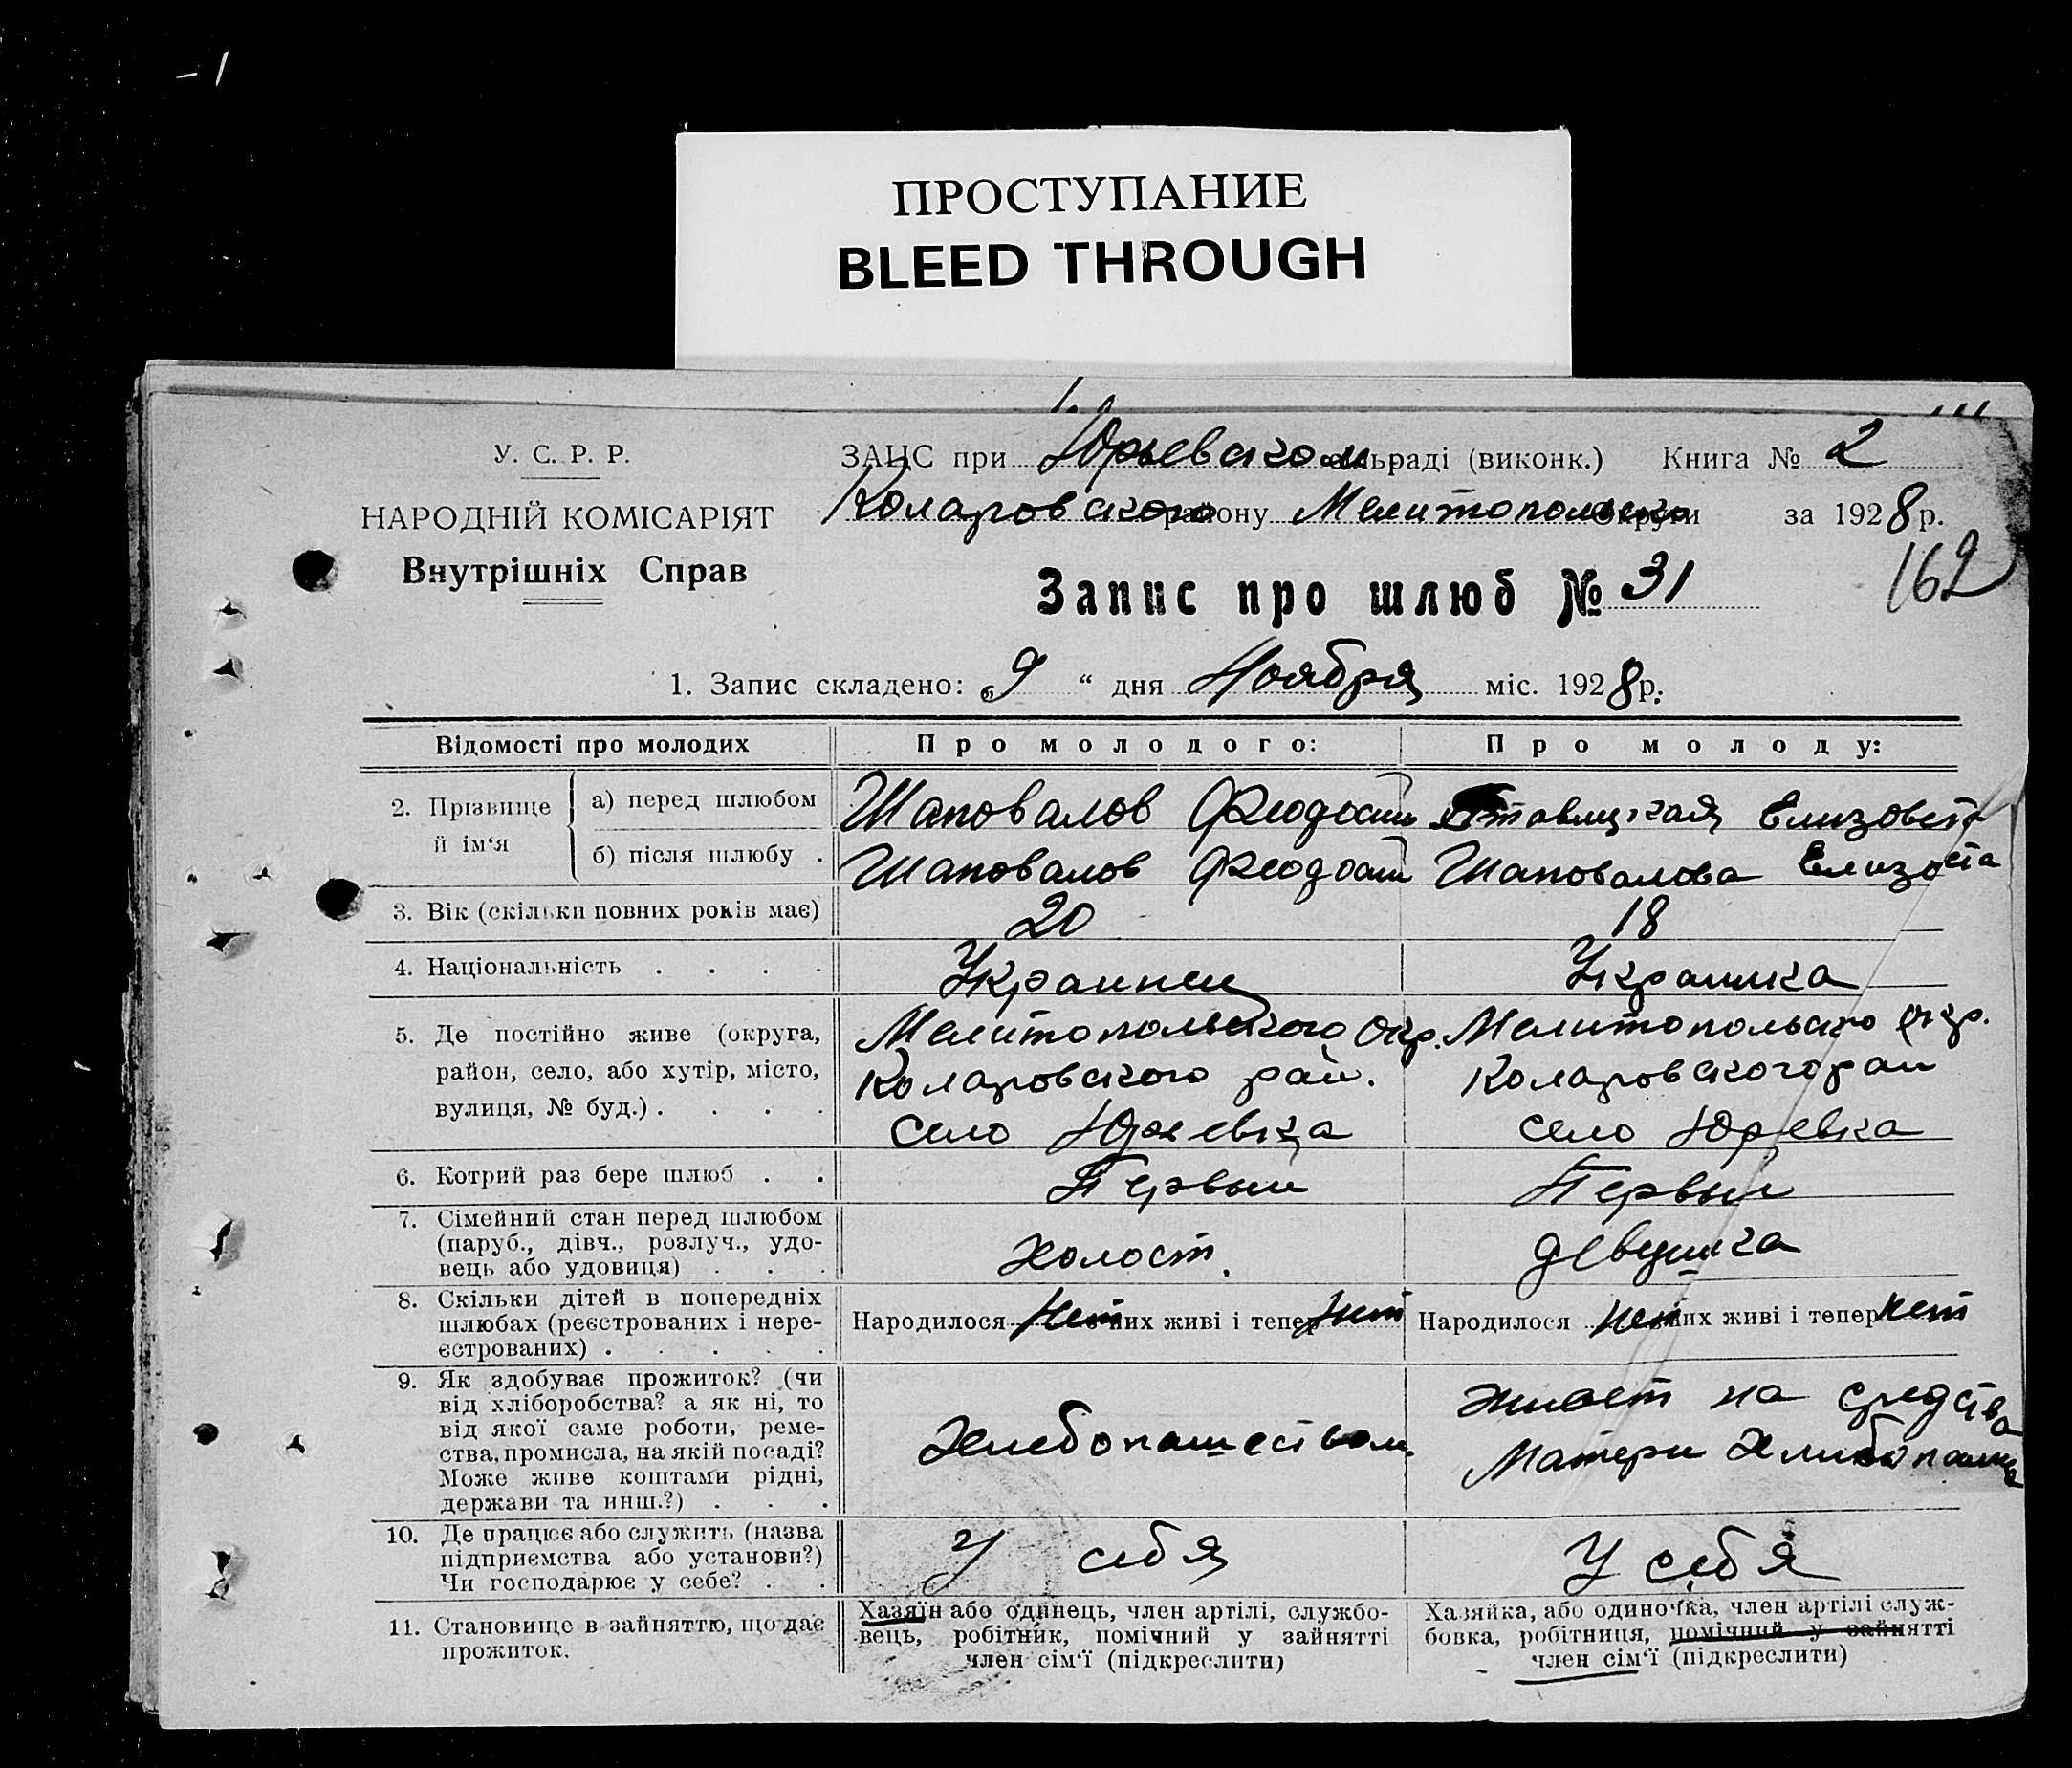 – 1
ПРОСТУПАНИЕ
BLEED THROUGH
У. С. Р. Р.
НАРОДНІЙ КОМІСАРІЯТ
Внутрішніх Справ
ЗАЦС при Юрьевском сільраді (виконк.) Книга № 2
Коларовского району Мелитопольского Округи за 1928 р.
162
Запис про шлюб № 31
1. Запис складено: „9 “ дня Ноября міс. 1928 р.
Відомості про молодих
Про молодого:
Про молоду:
2. Прізвище й ім‘я
а) перед шлюбом
Шаповалов Феодосий
Елизовета
б) після шлюбу .
Шаповалов Феодосий
Шаповалова
3. Вік (скільки повних років має)
20
18
4. Національність . . . .
Украинец
Украинка
5. Де постійно живе (округа,
район, село, або хутір, місто,
вулиця, № буд.) . . . .
Мелитопольского Окр.
Коларовского рай.
село Юрьевка
Мелитопольско Окр.
Коларовского рай
село Юревка
6. Котрий раз бере шлюб . .
Первый
Первый
7. Сімейний стан перед шлюбом
(паруб., дівч., розлуч., удо-
вець або удовиця) . . .
Холост.
девушка
8. Скільки дітей в попередніх
шлюбах (реєстрованих і нере-
єстрованих) . . . . .
Народилося нет з них живі і тепер нет
Народилося нет з них живі і тепер нет
9. Як здобуває прожиток? (чи
від хліборобства? а як ні, то
від якої саме роботи, реме-
ства, промисла, на якій посаді?
Може живе коштами рідні,
держави та инш.?) . . .
Хлебопашеством
живет на средства
Матери
10. Де працює або служить (назва
підприємства або установи?)
Чи господарює у себе? . .
У себя
У себя
11. Становище в зайняттю, що дає
прожиток.
Хазяїн або одинець, член артілі, службо-
вець, робітник, помічний у зайнятті
член сім‘ї (підкреслити)
Хазяйка, або одиночка, член артілі служ-
бовка, робітниця, помічний у зайнятті
член сім‘ї (підкреслити)